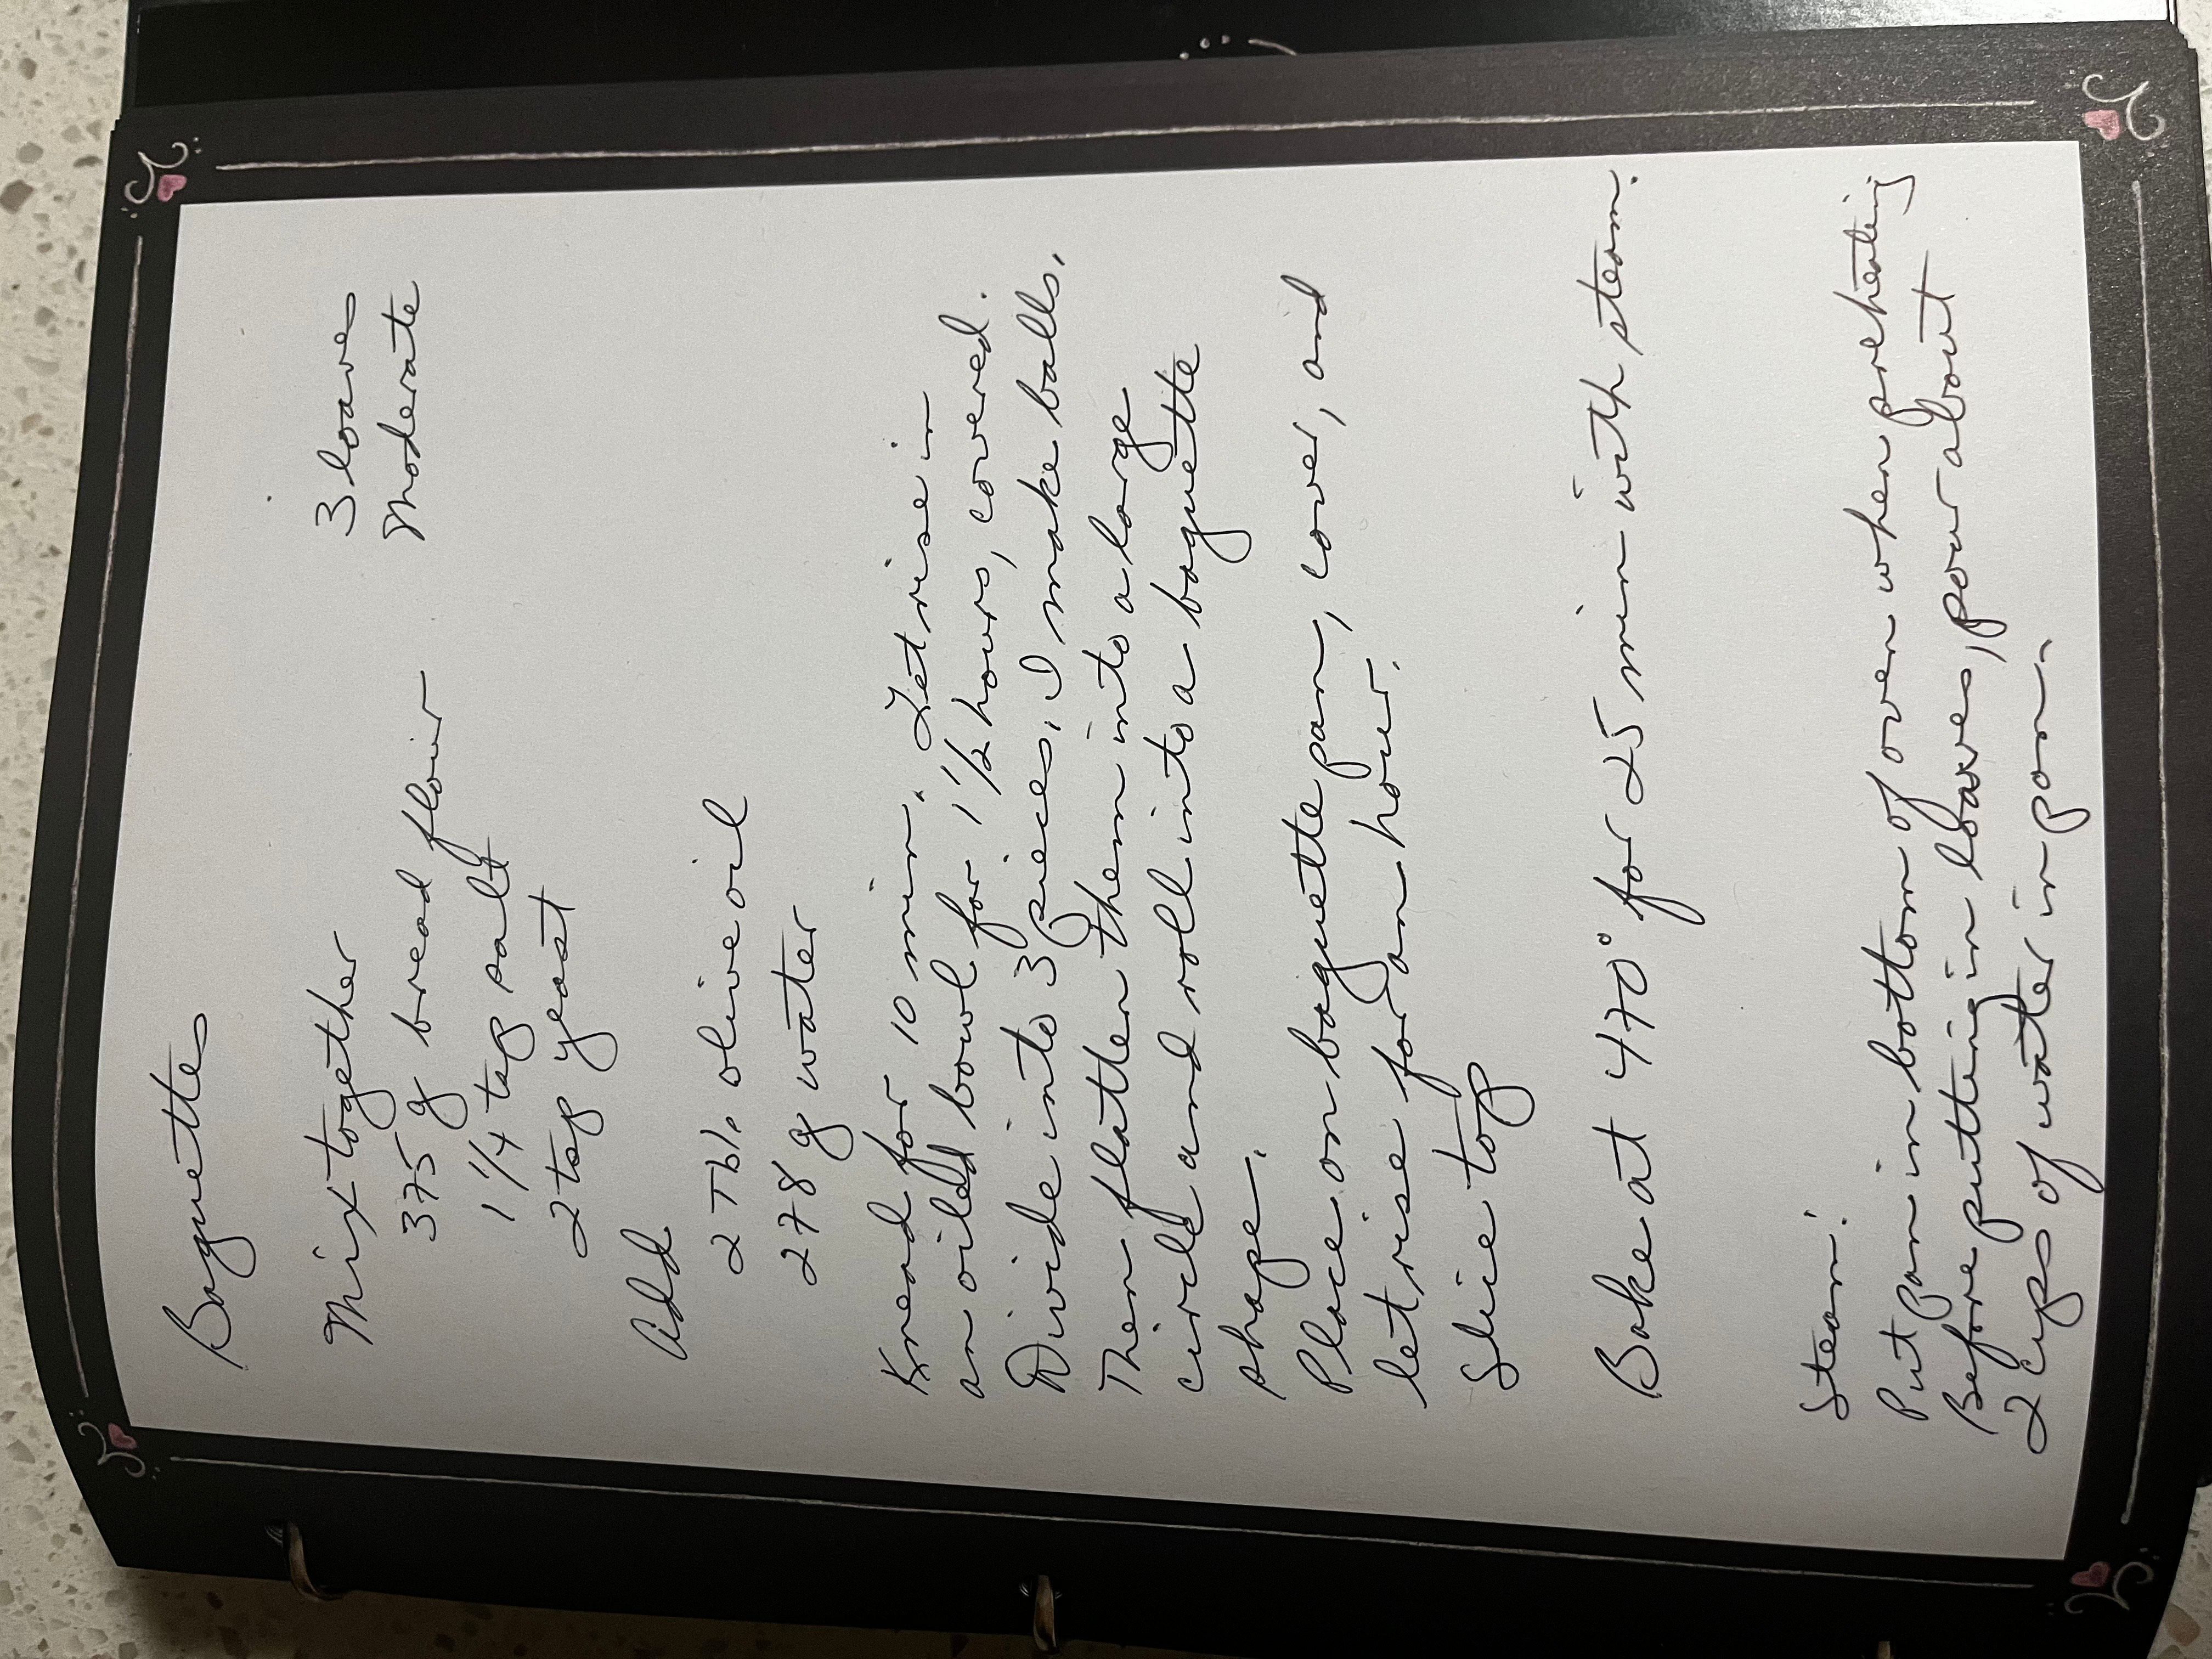 Baguettes
3 loaves
Moderate
Mix together
375 g bread flour
1 1/4 tsp salt
2 tsp yeast
Add
2 Tbl. olive oil
278 g water
Knead for 10 min. Let rise in
an oiled bowl for 1 1/2 hours, covered.
Divide into 3 pieces, I make balls,
Then flatten them into a large
circle and roll into a baguette
shape.
Place on baguette pan, cover, and
let rise for an hour.
Slice top
Bake at 470° for 25 min with steam.
Steam:
Put pan in bottom of oven when preheating
Before putting in loaves, pour about
2 cups of water in pan.